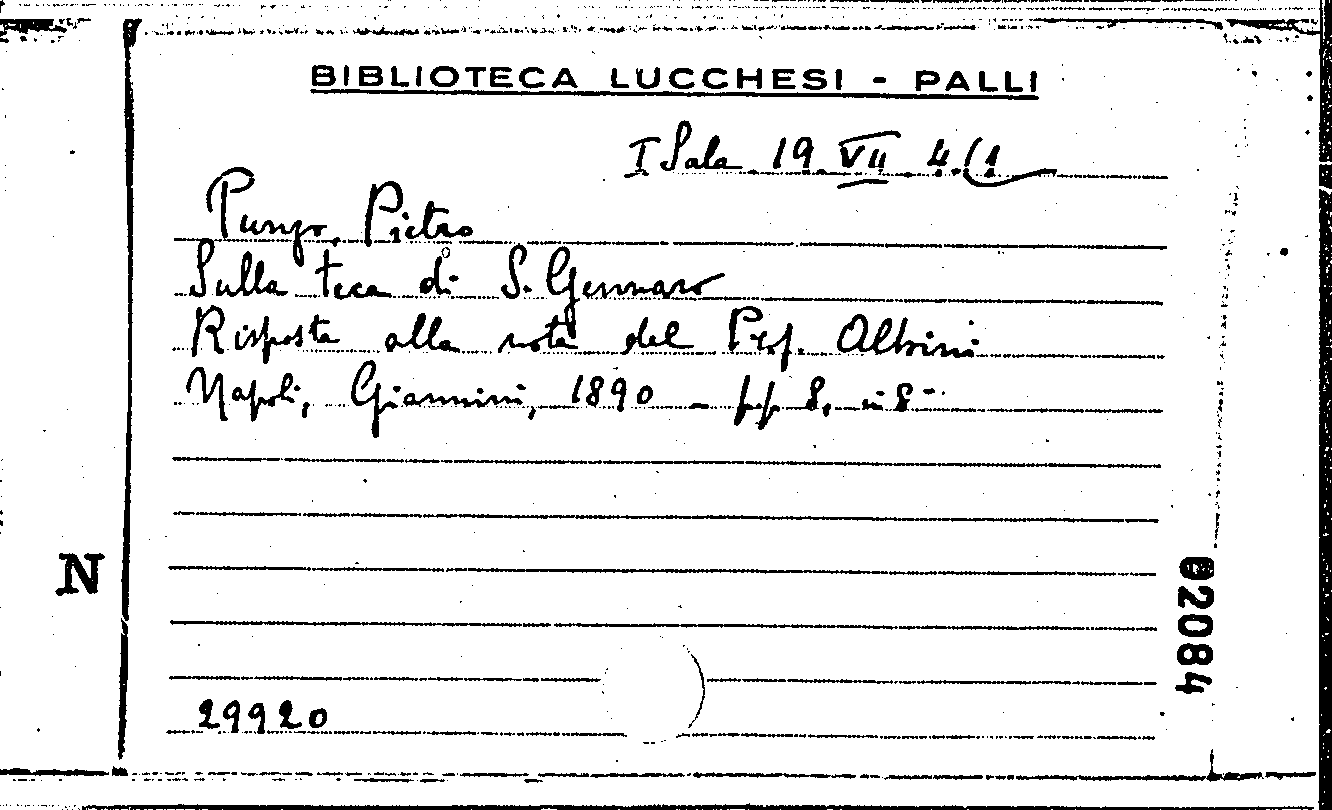 BIBLIOTECA LUCCHESI - PALLI
I Sala 19. VII. 4.(1
Punzo, Pietro
Sulla teca di S. Gennaro
Risposta alla nota del Prof. Albini
Napoli, Giannini, 1890 - pp 8, in 8-
N
02084
29920